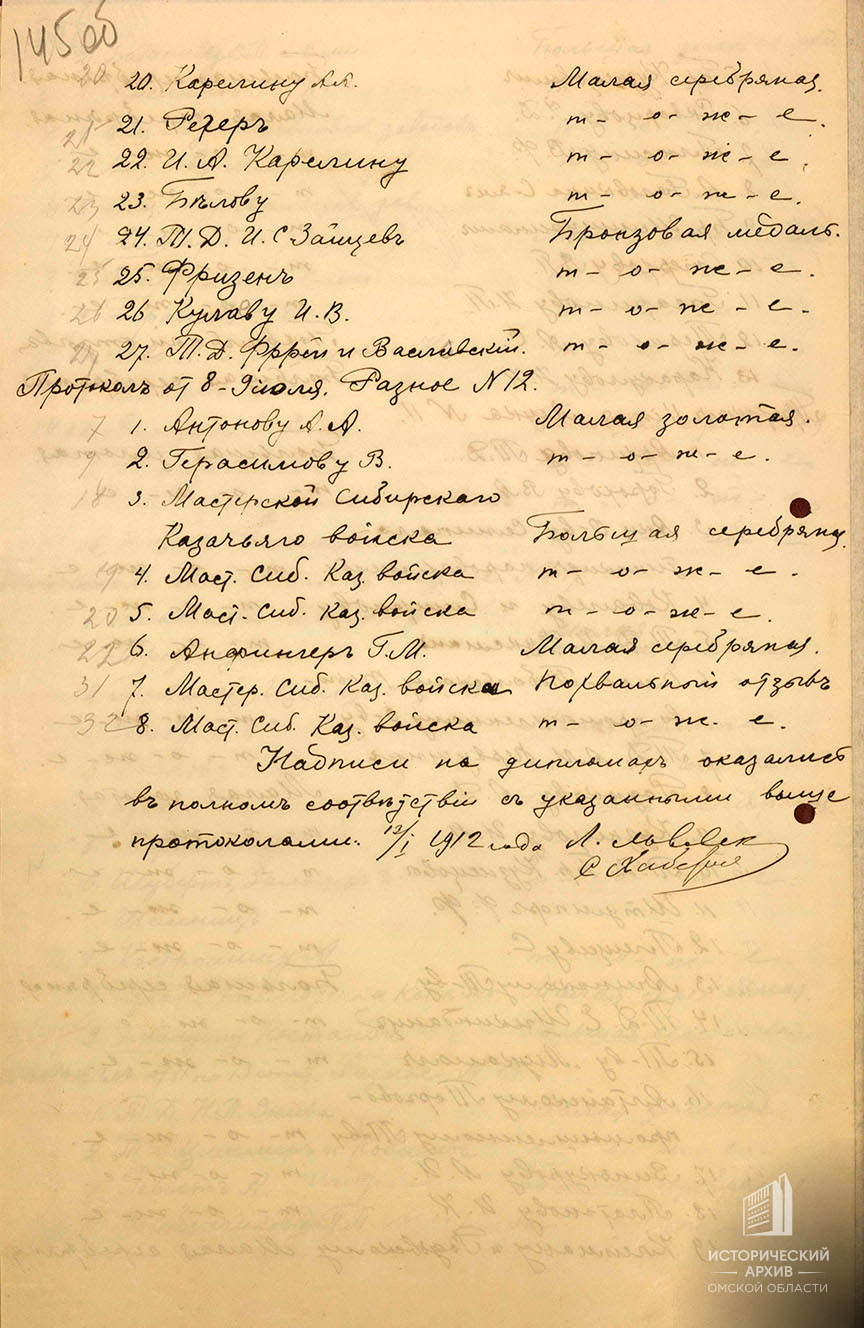 145об
20 20. Карелину А.А. Малая серебряная.
21 21. Регеръ т - о - ж - е.
22 22. И. А. Карелину т - о - ж - е.
23 23. Бѣлову т - о - ж - е.
24 24. Т. Д. И. С Зайцевъ Бронзовая медаль.
25 25. Фризенъ т - о - ж - е.
26 26 Кулаву И. В. т - о - ж - е -
27. Т. Д. и Васливскій. т - о - ж - е.
Протоколъ от 8-9 июля. Разное N 12.
7 1. Антонову А. А. Малая золотая.
9 2. Герасимову В. т - о - ж - е.
18 3. Мастерской Сибирскаго
Казачьяго войска Большая серебряна.
19 4. Маст. Сиб. Каз. войска т - о - ж - е.
20 5. Маст. Сиб. Каз. войска т - о - ж - е.
22 6. Анфингеръ Г. М. Малая серебряная.
31 7. Мастер. Сиб. Каз. войска Похвальный отзывъ
32 8. Маст. Сиб. Каз. войска т - о - ж. е.
Надписи на дипломахъ оказались
въ полномъ соотвѣтствіи съ указанными выше
протоколами. 12/I 1912 года Л.
С
ИСТОРИЧЕСКИЙ
АРХИВ
ОМСКОЙ ОБЛАСТИ